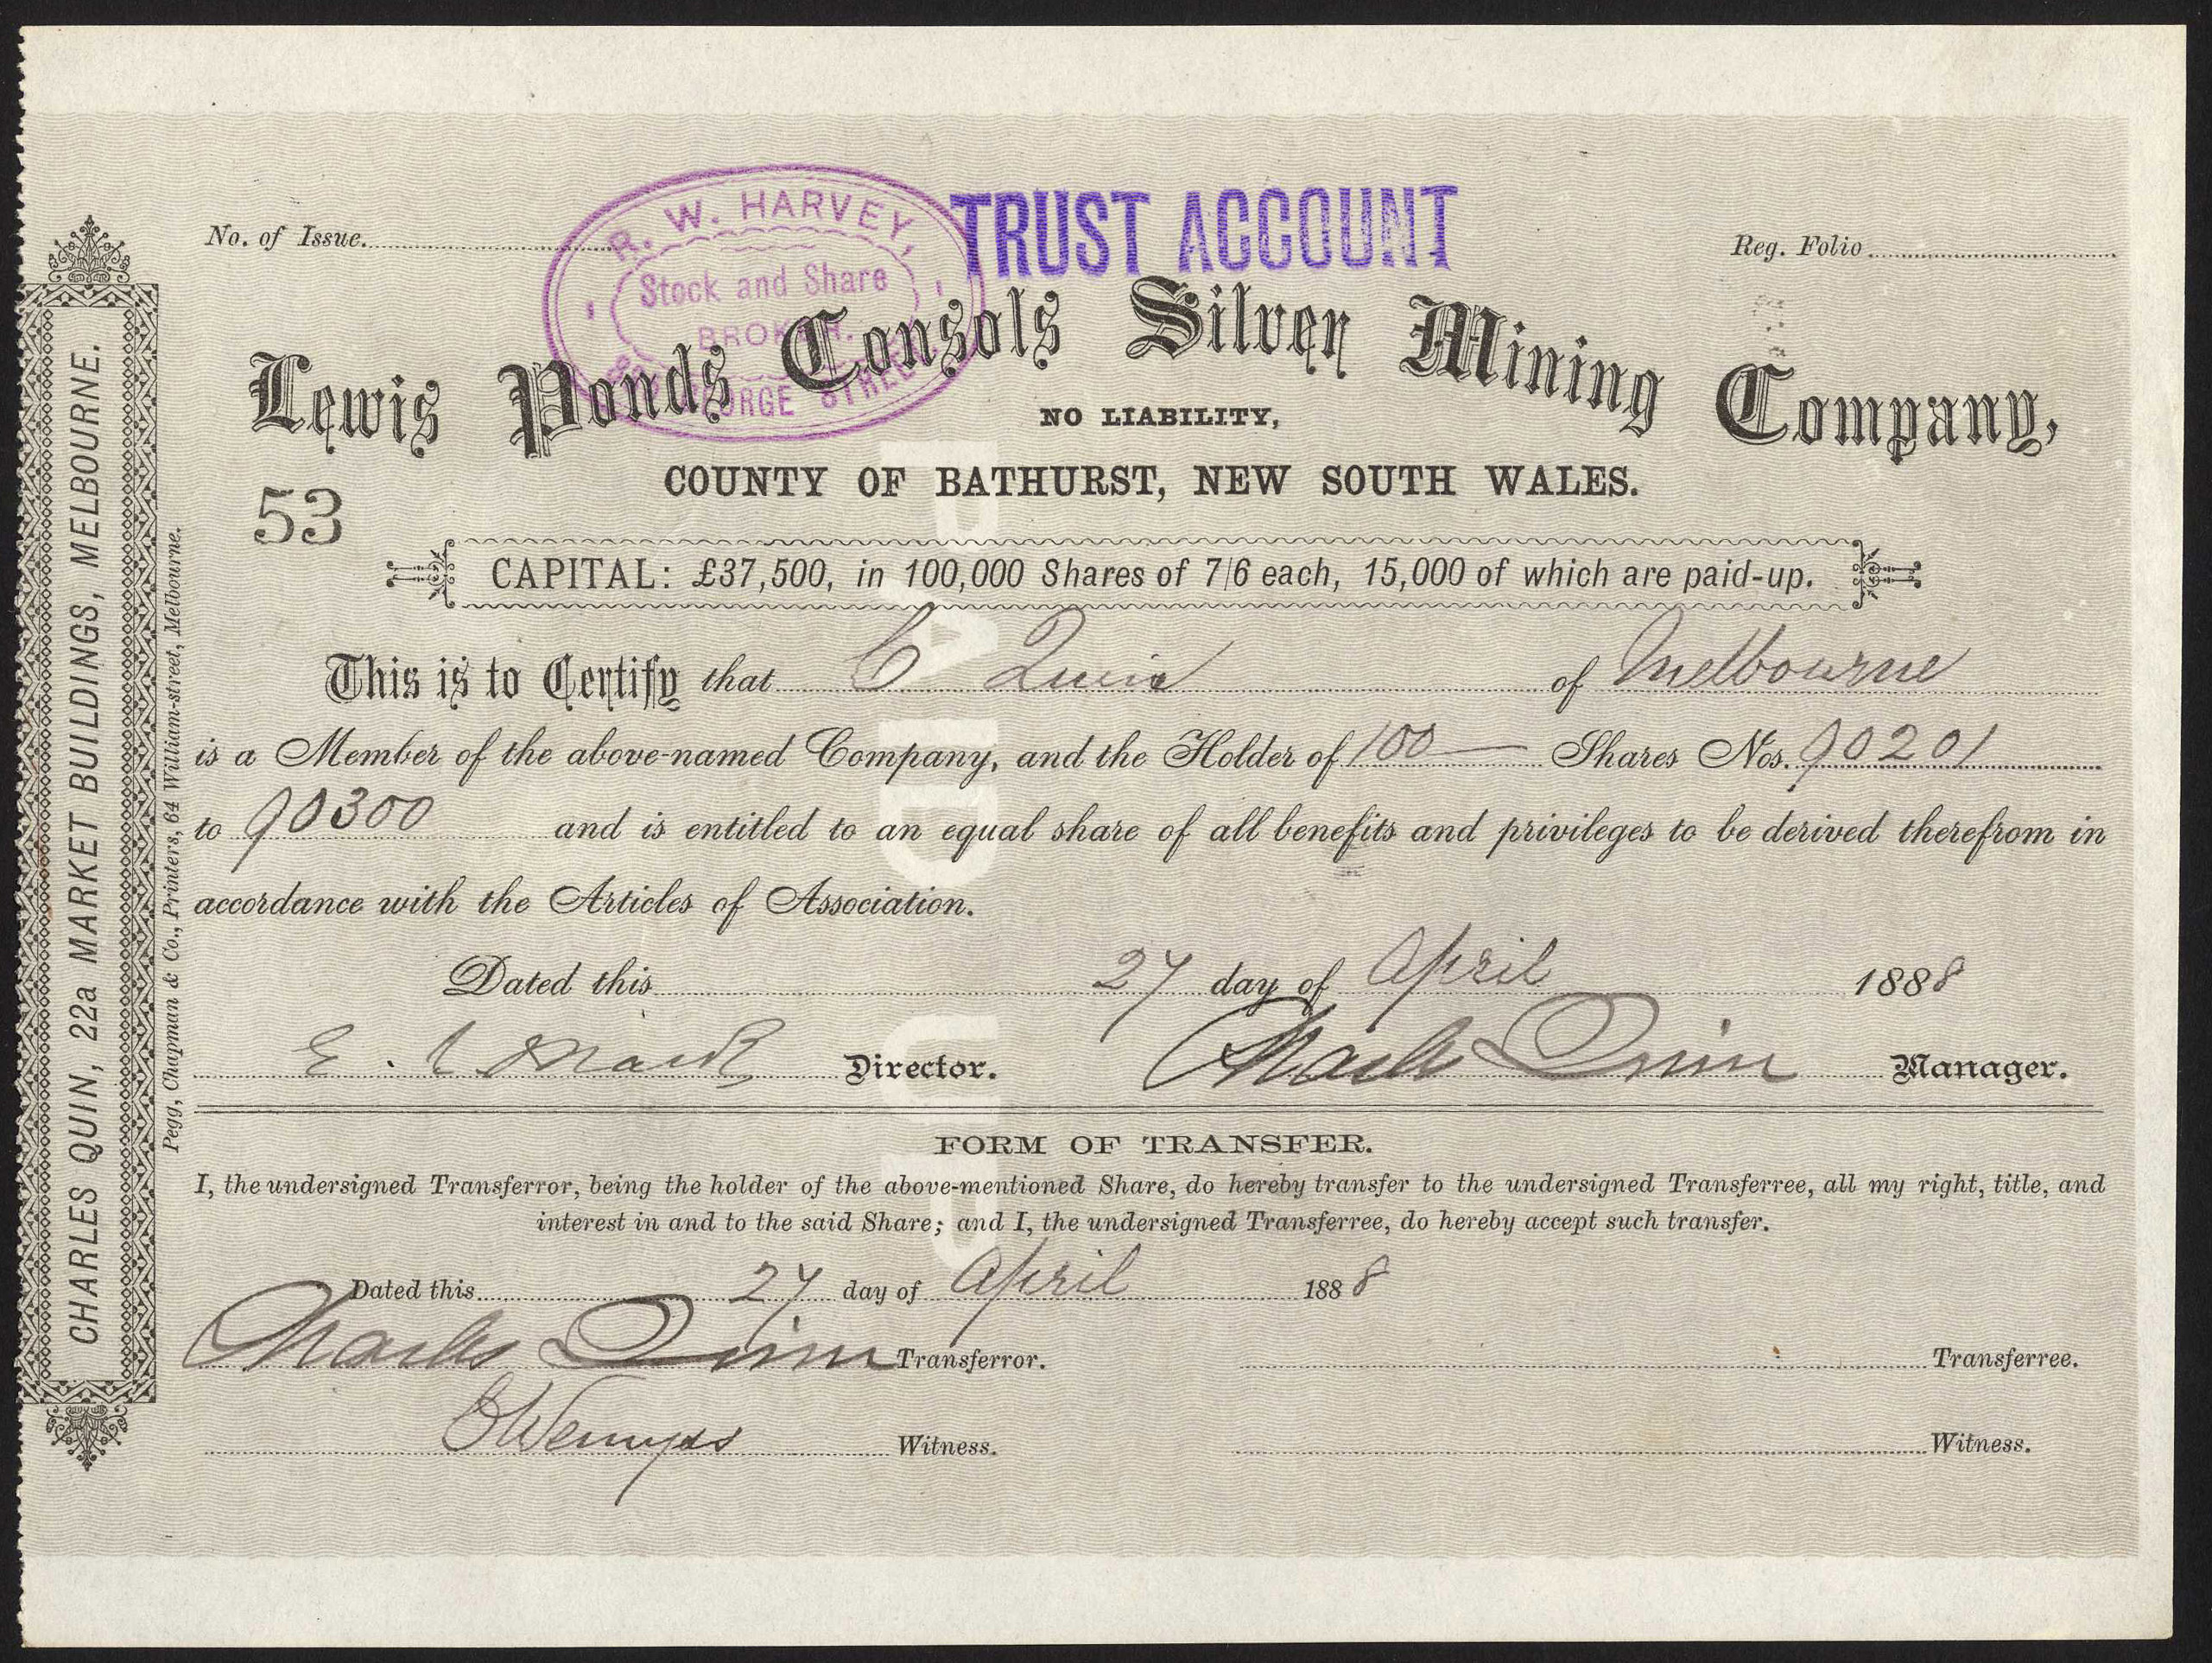 R. W. HARVEY,
Stock and Share
BROKER.
GEORGE STREET
TRUST ACCOUNT
No. of Issue.
Reg. Folio
Lewis Ponds Consols Silver Mining Company,
NO LIABILITY,
COUNTY OF BATHURST, NEW SOUTH WALES.
53
CAPITAL: £37,500, in 100,000 Shares of 7/6 each, 15,000 of which are paid-up.
This is to Certify that C Quin of Melbourne
is a Member of the above-named Company, and the Holder of 100 Shares Nos. 90201
to 90300 and is entitled to an equal share of all benefits and privileges to be derived therefrom in
accordance with the Articles of Association.
Dated this 27 day of April 1888
Director. Charles Quin Manager.
FORM OF TRANSFER.
I, the undersigned Transferror, being the holder of the above-mentioned Share, do hereby transfer to the undersigned Transferree, all my right, title, and
interest in and to the said Share; and I, the undersigned Transferree, do hereby accept such transfer.
Dated this 27 day of April 1888
Charles Quin Transferror. Transferree.
Wemyss Witness. Witness.
CHARLES QUIN, 22a MARKET BUILDINGS, MELBOURNE.
Pegg, Chapman & Co., Printers, 64 William-street, Melbourne.
PAID UP